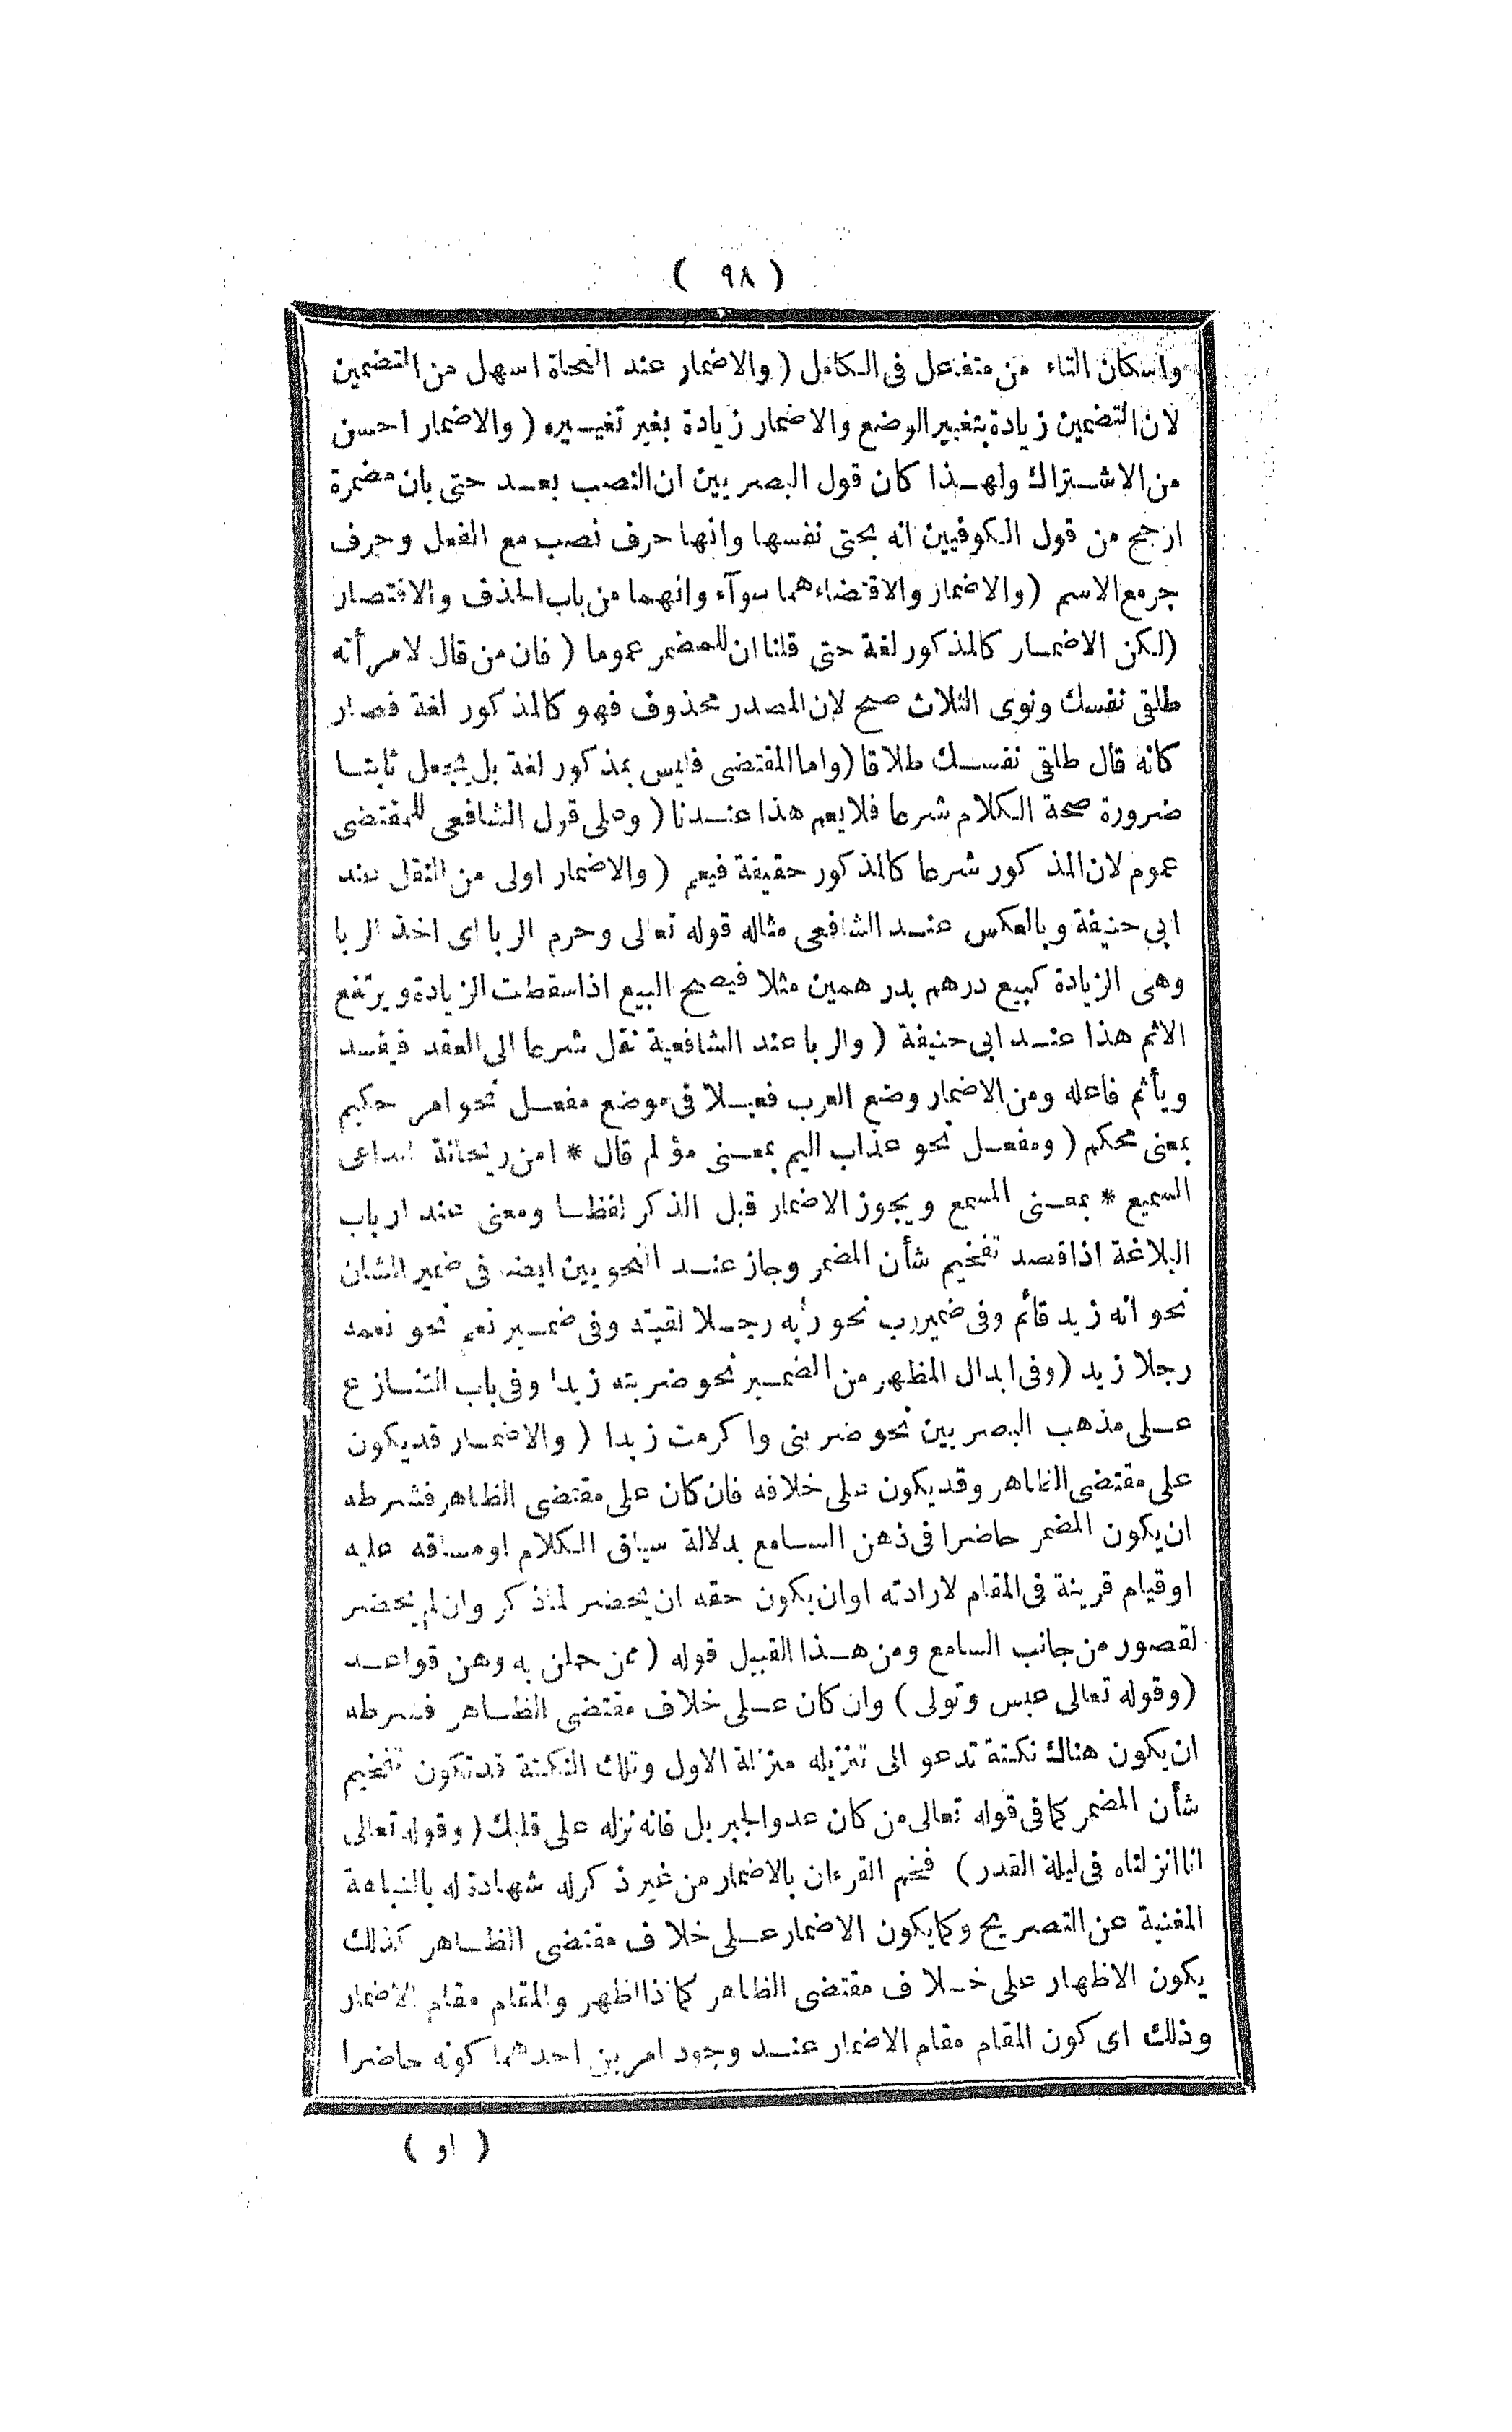 ( ٩٨ )
واسكان التاء من متفعل فى الكامل ( والاضمار عند النحاة اسهل من التضمين
لان التضمين زيادة بتغيير الوضع والاضمار زيادة بغير تغييره ( والاضمار احسن
من الاشتراك ولهذا كان قول البصريين ان النصب بعد حتى بان مضمرة
ارجح من قول الكوفيين انه بحتى نفسها وانها حرف نصب مع الفعل وحرف
جر مع الاسم ( والاضمار والاقتضاء هما سوآء وانهما من باب الحذف والاقتصار
( لكن الاضمار كالمذكور لغة حتى قلنا ان للمضمر عموما ( فان من قال لامرأته
طلقى نفسك ونوى الثلاث صح لان المصدر محذوف فهو كالمذكور لغة فصار
كانه قال طلقى نفسك طلاقا ( واما المقتضى فليس بمذكور لغة بل يجعل ثابتا
ضرورة صحة الكلام شرعا فلا يعم هذا عندنا ( وعلى قول الشافعى للمقتضى
عموم لان المذكور شرعا كالمذكور حقيقة فيعم ( والاضمار اولى من النقل عند
ابى حنيفة وبالعكس عند الشافعى مثاله قوله تعالى وحرم الربا اى اخذ الربا
وهى الزيادة كبيع درهم بدرهمين مثلا فيصح البيع اذا سقطت الزيادة ويرتفع
الاثم هذا عند ابى حنيفة ( والربا عند الشافعية نقل شرعا الى العقد فيفسد
ويأثم فاعله ومن الاضمار وضع العرب فعيلا فى موضع مفعل نحو امر حكيم
بمعنى محكم ( ومفعل نحو عذاب اليم بمعنى مؤلم قال * امن ريحانة الداعى
السميع * بمعنى المسمع ويجوز الاضمار قبل الذكر لفظا ومعنى عند ارباب
البلاغة اذا قصد تفخيم شأن المضمر وجاز عند النحويين ايضا فى ضمير الشان
نحو انه زيد قائم وفى ضمير رب نحو ربه رجلا لقيته وفى ضمير نعم نحو نعمه
رجلا زيد ( وفى ابدال المظهر من الضمير نحو ضربته زيدا وفى باب التنازع
على مذهب البصريين نحو ضربنى واكرمت زيدا ( والاضمار قد يكون
على مقتضى الظاهر وقد يكون على خلافه فان كان على مقتضى الظاهر فشرطه
ان يكون المضمر حاضرا فى ذهن السامع بدلالة سياق الكلام او مساقه عليه
او قيام قرينة فى المقام لارادته او ان يكون حقه ان يحضر لما ذكر وان لم يحضر
لقصور من جانب السامع ومن هذا القبيل قوله ( ممن حملن به وهن قواعد
( وقوله تعالى عبس وتولى ) وان كان على خلاف مقتضى الظاهر فشرطه
ان يكون هناك نكتة تدعو الى تنزيله منزلة الاول وتلك النكتة قد تكون تفخيم
شأن المضمر كما فى قوله تعالى من كان عدوا لجبريل فانه نزله على قلبك ( وقوله تعالى
انا انزلناه فى ليلة القدر ) فخم القرءان بالاضمار من غير ذكر له شهادة له بالنباهة
المغنية عن التصريح وكما يكون الاضمار على خلاف مقتضى الظاهر كذلك
يكون الاظهار على خلاف مقتضى الظاهر كما اذا اظهر والمقام مقام الاضمار
وذلك اى كون المقام مقام الاضمار عند وجود امرين احدهما كونه حاضرا
( او )